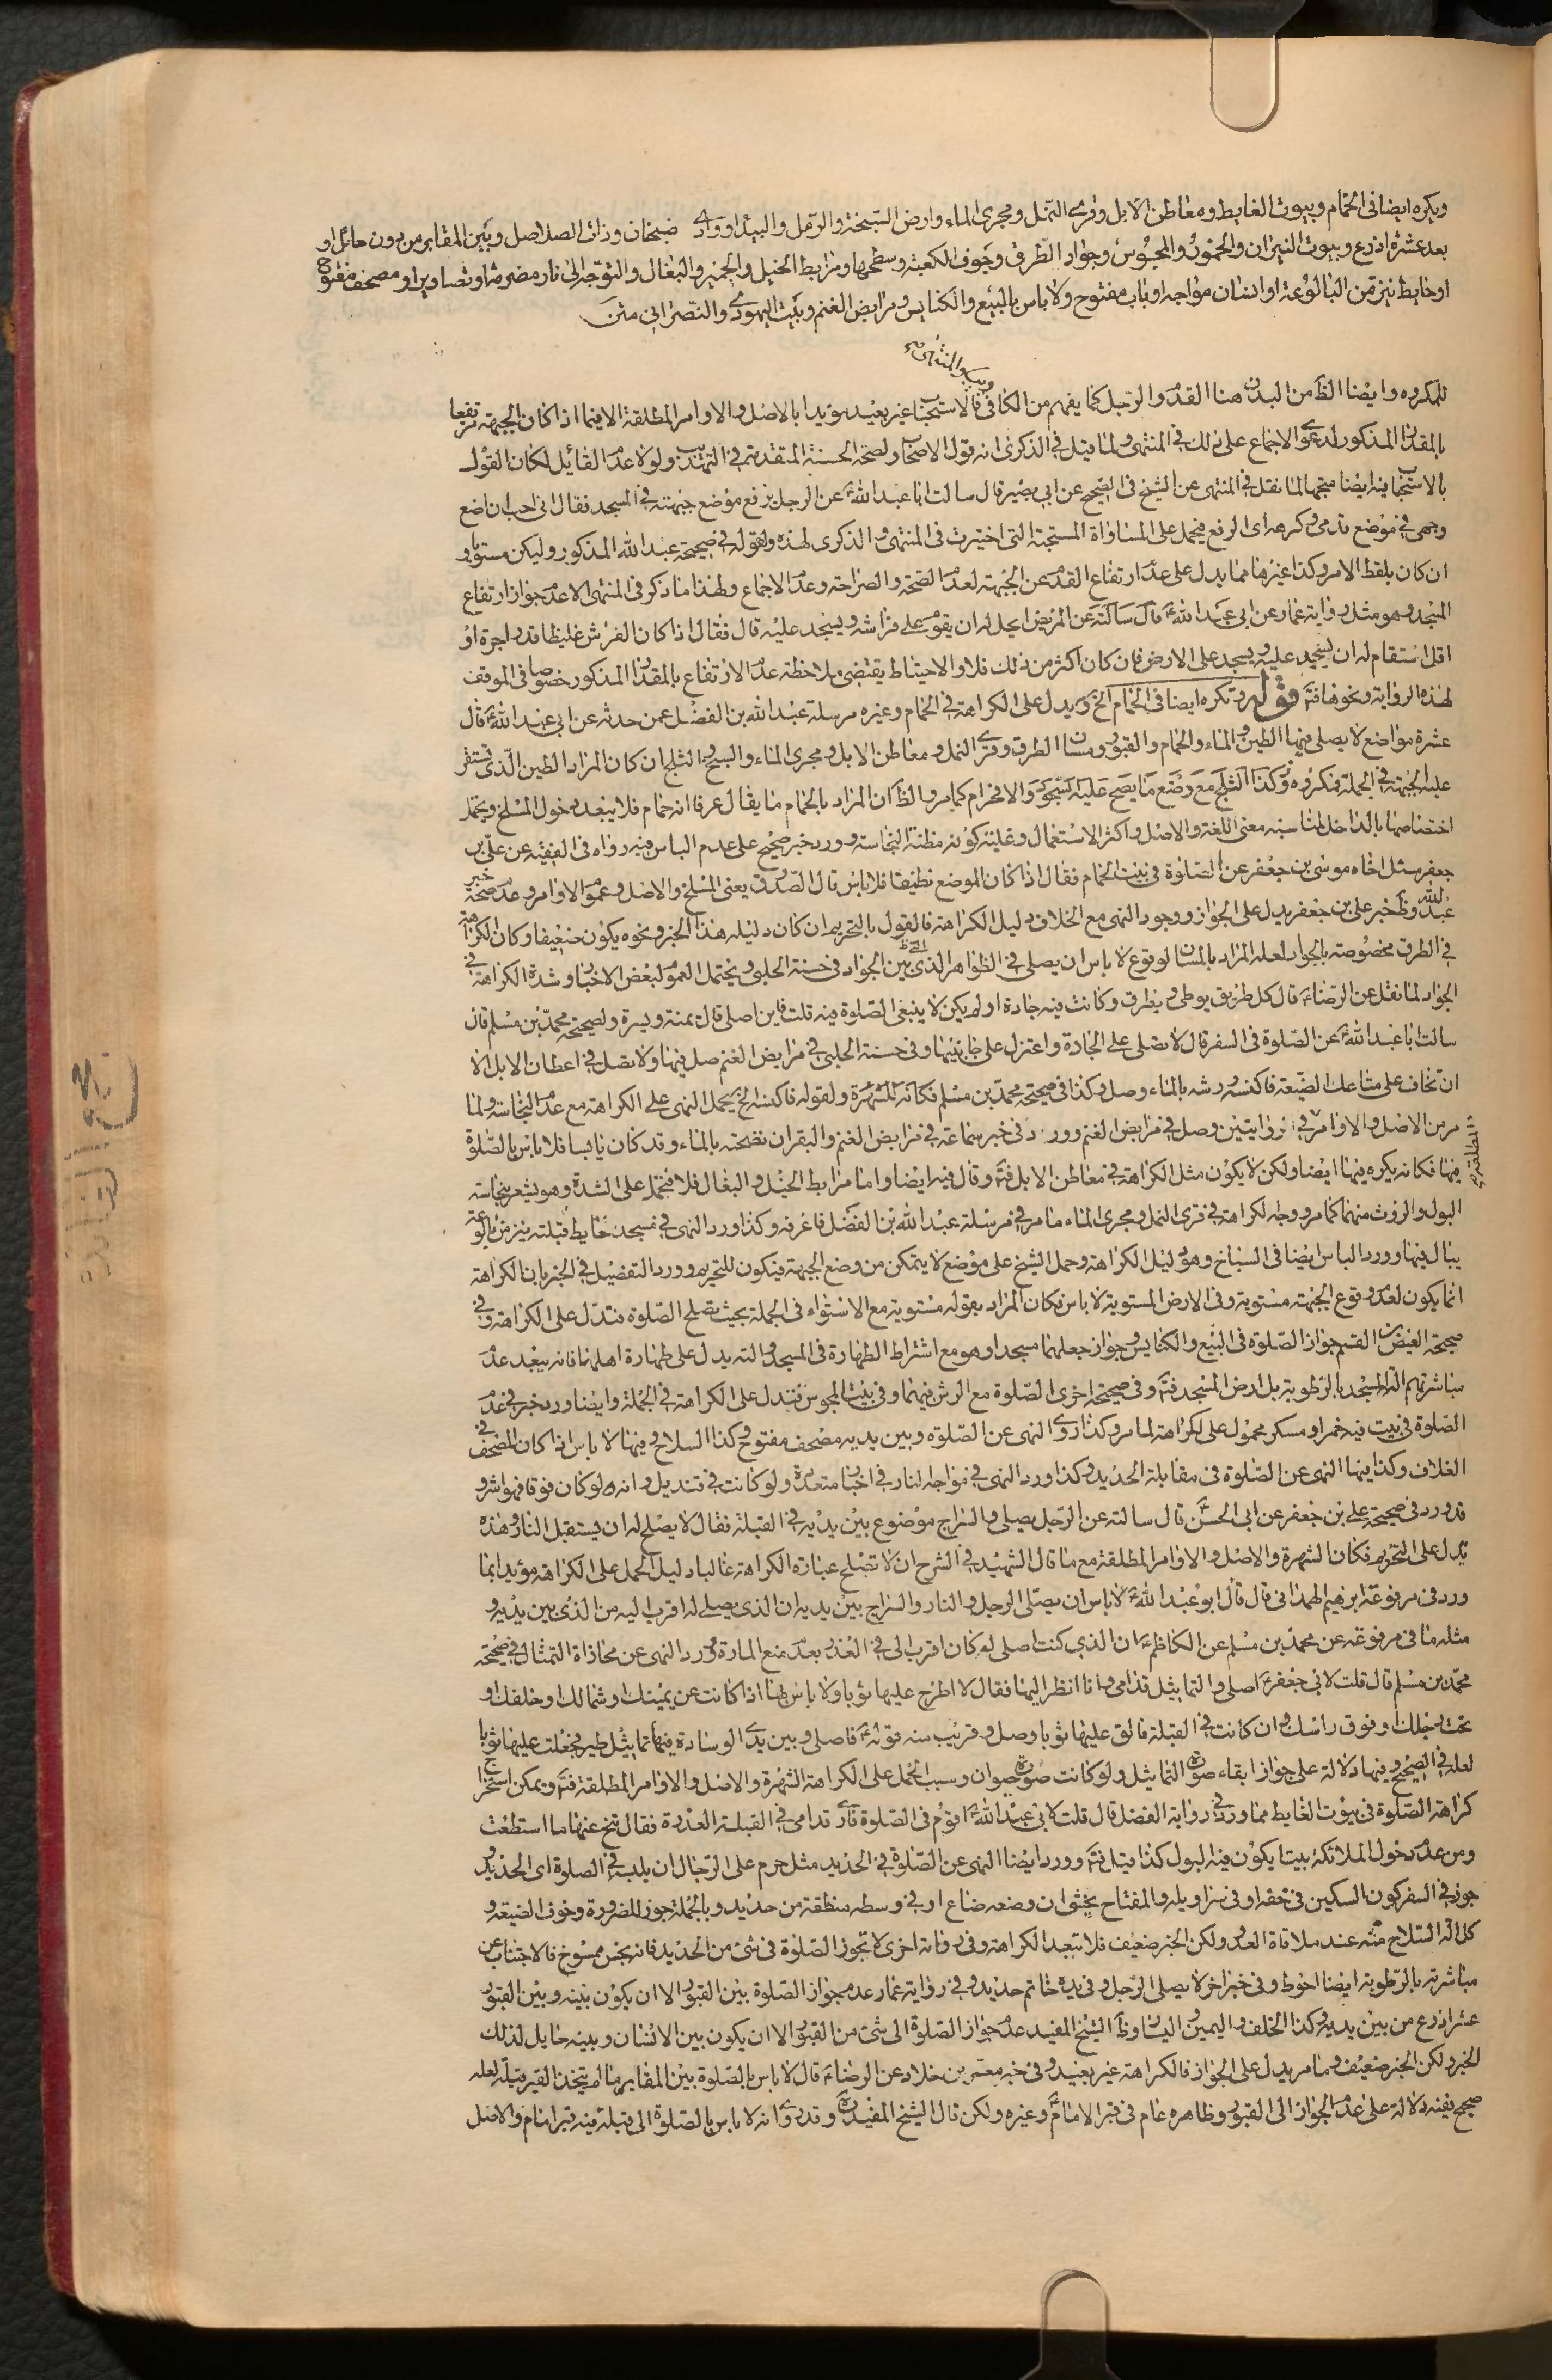 ويكره ايضا فى الحمام وبيوت الغايط ومعاطن الابل وقرى النمل ومجرى الماء وارض السبخة والرمل والبيداء ووادى ضجنان وذات الصلاصل وبين المقابر من دون حائل او
بعد عشرة اذرع وبيوت النيران والخمور والمجوس وجواد الطرق وجوف الكعبة وسطحها ومرابط الخيل والحمير والبغال والتوجه الى نار مضرمة او تصاوير او مصحف مفتوح
او حايط ينز من البالوعة او انسان مواجه او باب مفتوح ولا باس بالبيع والكنايس ومرابض الغنم وبيت اليهودى والنصرانى متن
للمكروه وايضا الظ من البدن هنا القدم والرجل كما يفهم من الكافى فالاستحباب غير بعيد مؤيدا بالاصل والاوامر المطلقة الا فيما اذا كان الجبهة مرتفعا
بالمقدار المذكور لدعوى الاجماع على ذلك فى المنتهى ولما قيل فى الذكرى انه قول الاصحاب ولصحة الحسنة المتقدمة فى التهذيب ولولا عدم القائل لكان القول
بالاستحباب فيه ايضا متجها لما نقل فى المنتهى عن الشيخ فى الصحيح عن ابى بصير قال سالت ابا عبد الله ع عن الرجل يرفع موضع جبهته فى المسجد فقال انى احب ان اضع
وجهى فى موضع قدمى وكرهه اى الرفع فيحمل على المساواة المستحبة التى اختيرت فى المنتهى والذكرى لهذه ولقوله فى صحيحة عبد الله المذكور وليكن مستويا و
ان كان بلفظ الامر وكذا غيرها مما يدل على عدم ارتفاع القدم عن الجبهة لعدم الصحة والصراحة وعدم الاجماع ولهذا ما ذكر فى المنتهى الا عدم جواز ارتفاع
المسجد وهو مثل رواية عمار عن ابى عبد الله ع قال سالته عن المريض ايحل له ان يقوم على فراشه ويسجد عليه قال فقال اذا كان الفرش غليظا قدر اجرة او
اقل استقام له ان يسجد عليه ويسجد على الارض فان كان اكثر من ذلك فلا والاحتياط يقتضى ملاحظة عدم الارتفاع بالمقدار المذكور خصوصا فى الموقف
لهذه الرواية ونحوها فتم قوله وتكره ايضا فى الحمام الخ ويدل على الكراهة فى الحمام وغيره مرسلة عبد الله بن الفضل عمن حدثه عن ابى عبد الله ع قال
عشرة مواضع لا يصلى فيها الطين والماء والحمام والقبور ومسان الطرق وقرى النمل ومعاطن الابل ومجرى الماء والسبخ والثلج ان كان المراد الطين الذى تستقر
عليه الجبهة فى الجملة فمكروه وكذا الثلج مع وضع ما يصح عليه السجود والا فحرام كما مر والظ ان المراد بالحمام ما يقال عرفا انه حمام فلا يبعد دخول المسلخ ويحتمل
اختصاصها بالداخل لمناسبته معنى اللغة والاصل واكثر الاستعمال وغلبة كونه مظنة النجاسة وورد خبر صحيح على عدم الباس فيه رواه فى الفقيه عن على بن
جعفر سئل اخاه موسى بن جعفر عن الصلوة فى بيت الحمام فقال اذا كان الموضع نظيفا فلا باس قال الصدوق يعنى المسلخ والاصل وعموم الاوامر وعدم صحة خبر
عبد الله وظ خبر على بن جعفر يدل على الجواز ووجود النهى مع الخلاف دليل الكراهة فالقول بالتحريم ان كان دليله هذا الخبر ونحوه يكون ضعيفا وكان الكراهة
فى الطرق مخصوصة بالجواد لعله المراد بالمسان لوقوع لا باس ان يصلى فى الظواهر التى بين الجواد فى حسنة الحلبى ويحتمل العموم لبعض الاخبار وشدة الكراهة فى
الجواد لما نقل عن الرضا ع قال كل طريق يوطى ويطرق وكانت فيه جادة او لم يكن لا ينبغى الصلوة فيه قلت فاين اصلى قال يمنة ويسرة ولصحيحة محمد بن مسلم قال
سالت ابا عبد الله ع عن الصلوة فى السفر قال لا تصلى على الجادة واعتزل على جانبيها وفى حسنة الحلبى فى مرابض الغنم صل فيها ولا تصل فى اعطان الابل الا
ان تخاف على متاعك الضيعة فاكنسه ورشه بالماء وصل وكذا فى صحيحة محمد بن مسلم فكانه للشهرة ولقوله فاكنسه الخ يحمل النهى على الكراهة مع عدم النجاسة ولما
مر من الاصل والاوامر فى الروايتين وصل فى مرابض الغنم وورد فى خبر سماعة فى مرابض الغنم والبقر ان نضحته بالماء وقد كان يابسا فلا باس بالصلوة
فيها فكانه يكره فيها ايضا ولكن لا يكون مثل الكراهة فى معاطن الابل فتم وقال فيه ايضا واما مرابط الخيل والبغال فلا فيحمل على الشدة وهو يشعر بنجاسة
البول والروث منهما كما مر ووجه لكراهة فى قرى النمل ومجرى الماء ما مر فى مرسلة عبد الله بن الفضل فاعرفه وكذا ورد النهى فى مسجد حايط قبلته ينز من بالوعة
يبال فيها وورد الباس ايضا فى السباخ وهو دليل الكراهة وحمل الشيخ على موضع لا يتمكن من وضع الجبهة فيكون للتحريم وورد التفصيل فى الخبر بان الكراهة
انما يكون لعدم وقوع الجبهة مستوية وفى الارض المستوية لا باس فكان المراد بقوله مستوية مع الاستواء فى الجملة بحيث يصلح الصلوة فتدل على الكراهة وفى
صحيحة العيص بن القسم جواز الصلوة فى البيع والكنايس وجواز جعلهما مسجدا وهو مع اشتراط الطهارة فى المسجد والته يدل على طهارة اهلهما فانه يبعد عدم
مباشرتهم الة المسجد بالرطوبة بل ارض المسجد فتم وفى صحيحة اخرى الصلوة مع الرش فيهما وفى بيت المجوس فتدل على الكراهة فى الجملة وايضا ورد خبر فى عدم
الصلوة فى بيت فيه خمر او مسكر محمول على لكراهة لما مر وكذا روى النهى عن الصلوة وبين يديه مصحف مفتوح وكذا السلاح وفيها لا باس اذا كان المصحف فى
الغلاف وكذا فيها النهى عن الصلوة فى مقابلة الحديد وكذا ورد النهى فى مواجهة النار فى اخبار متعددة ولو كانت فى قنديل وانه لو كان فوقا فهو اشر و
قد ورد فى صحيحة على بن جعفر عن ابى الحسن ع قال سالته عن الرجل يصلى والسراج موضوع بين يديه فى القبلة فقال لا يصلح له ان يستقبل النار وهذه
تدل على التحريم فكان الشهرة والاصل والاوامر المطلقة مع ما قال الشهيد فى الشرح ان لا تصلح عبارة الكراهة غالبا دليل الحمل على الكراهة مؤيدا بما
ورد فى مرفوعة ابرهيم الهمدانى قال قال ابو عبد الله ع لا باس ان يصلى الرجل والنار والسراج بين يديه ان الذى يصلى له اقرب اليه من الذى بين يديه و
مثله ما فى مرفوعة عن محمد بن مسلم عن الكاظم ع ان الذى كنت اصلى له كان اقرب الى فى العذر بعدم منع المارة وورد النهى عن محاذاة التمثال فى صحيحة
محمد بن مسلم قال قلت لابى جعفر ع اصلى والتماثيل قدامى وانا انظر اليها فقال لا اطرح عليها ثوبا ولا باس بها اذا كانت عن يمينك او شمالك او خلفك او
تحت رجلك او فوق راسك وان كانت فى القبلة فالق عليها ثوبا وصل وقريب منه قوله ع فاصلى وبين يدى الوسادة فيها تماثيل طير فجعلت عليها ثوبا
لعله فى الصحيح وفيها دلالة على جواز ابقاء صورة التماثيل ولو كانت صورة حيوان وسبب الحمل على الكراهة الشهرة والاصل والاوامر المطلقة فتم ويمكن استخراج
كراهة الصلوة فى بيوت الغايط مما ورد فى رواية الفضل قال قلت لابى عبد الله ع اقوم فى الصلوة فارى قدامى فى القبلة العذرة فقال تنح عنها ما استطعت
ومن عدم دخول الملائكة بيتا يكون فيه البول كذا قيل فتم وورد ايضا النهى عن الصلوة فى الحديد مثل حرم على الرجال ان يلبس فى الصلوة اى الحديد و
جوز فى السفر كون السكين فى خفه او فى سراويله والمفتاح يخشى ان وضعه ضاع او فى وسطه منطقة من حديد وبالجملة جوز للضرورة وخوف الضيعة و
كل الة السلاح عند ملاقاة العدو ولكن الخبر ضعيف فلا تبعد الكراهة وفى رواية اخرى لا تجوز الصلوة فى شئ من الحديد فانه نجس ممسوخ فالاجتناب عن
مباشرته بالرطوبة ايضا احوط وفى خبر اخر لا يصلى الرجل وفى يده خاتم حديد وفى رواية عمار عدم جواز الصلوة بين القبور الا ان يكون بينه وبين القبور
عشر اذرع من بين يديه وكذا الخلف واليمين واليسار وظ الشيخ المفيد عدم جواز الصلوة الى شئ من القبور الا ان يكون بين الانسان وبينه حايل لذلك
الخبر ولكن الخبر ضعيف وما مر يدل على الجواز فالكراهة غير بعيد وفى خبر معمر بن خلاد عن الرضا ع قال لا باس بالصلوة بين المقابر ما لم يتخذ القبر قبلة لعله
صحيح ففيه دلالة على عدم الجواز الى القبور وظاهره عام فى قبر الامام ع وغيره ولكن قال الشيخ المفيد ره وقد روى انه لا باس بالصلوة الى قبلة فيه قبر امام والاصل